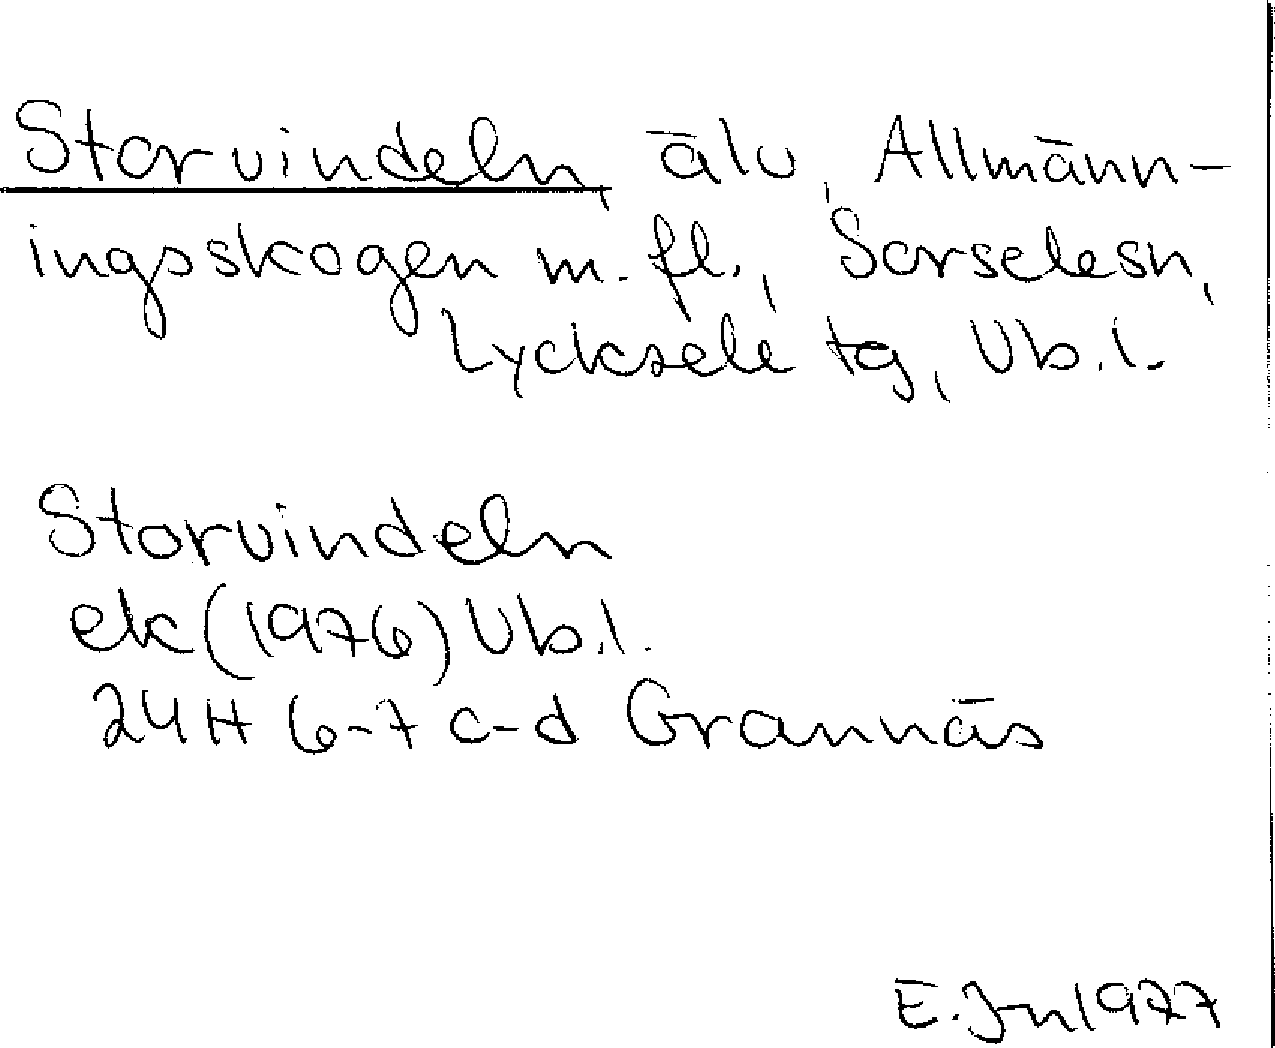 Storvindeln, älv, Allmänn-
ingsskogen m. fl., Sorselesn,
Lycksele tg, Vb.l.
Storvindeln
ek (1976) Vb.l.
24H 6-7 c-d Grannäs
E. Jn 1977